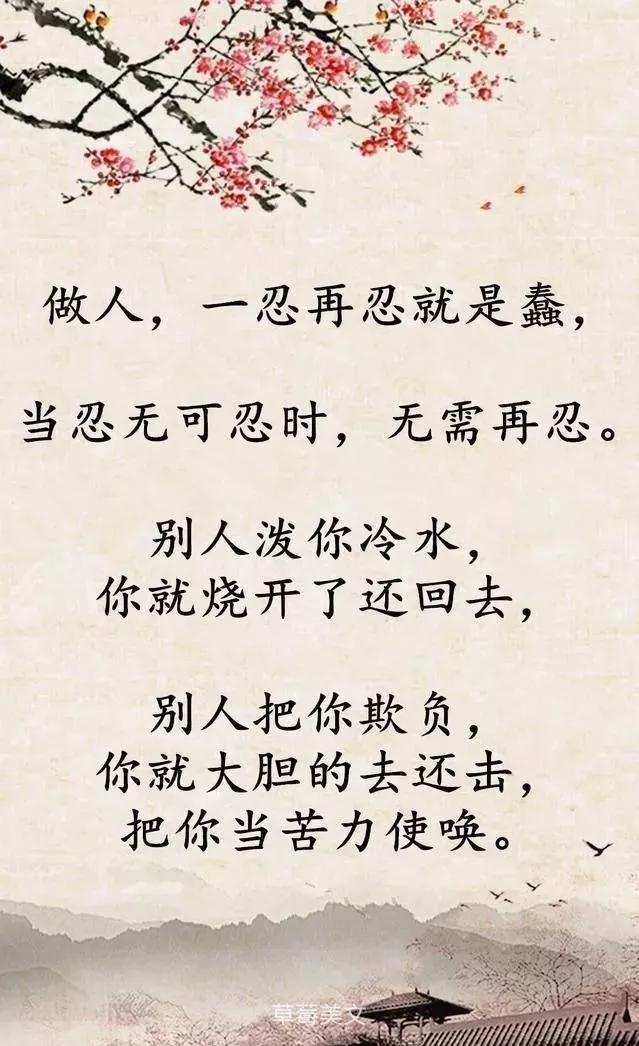 做人，一忍再忍就是蠢，
当忍无可忍时，无需再忍。
别人泼你冷水，
你就烧开了还回去，
别人把你欺负，
你就大胆的去还击，
把你当苦力使唤。
草莓美文